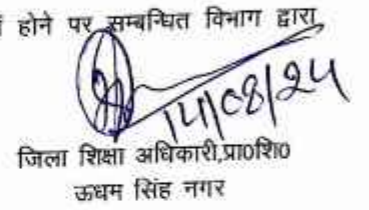 होने पर सम्बन्धित विभाग द्वारा
14/08/24
जिला शिक्षा अधिकारी,प्रा0शि0
ऊधम सिंह नगर